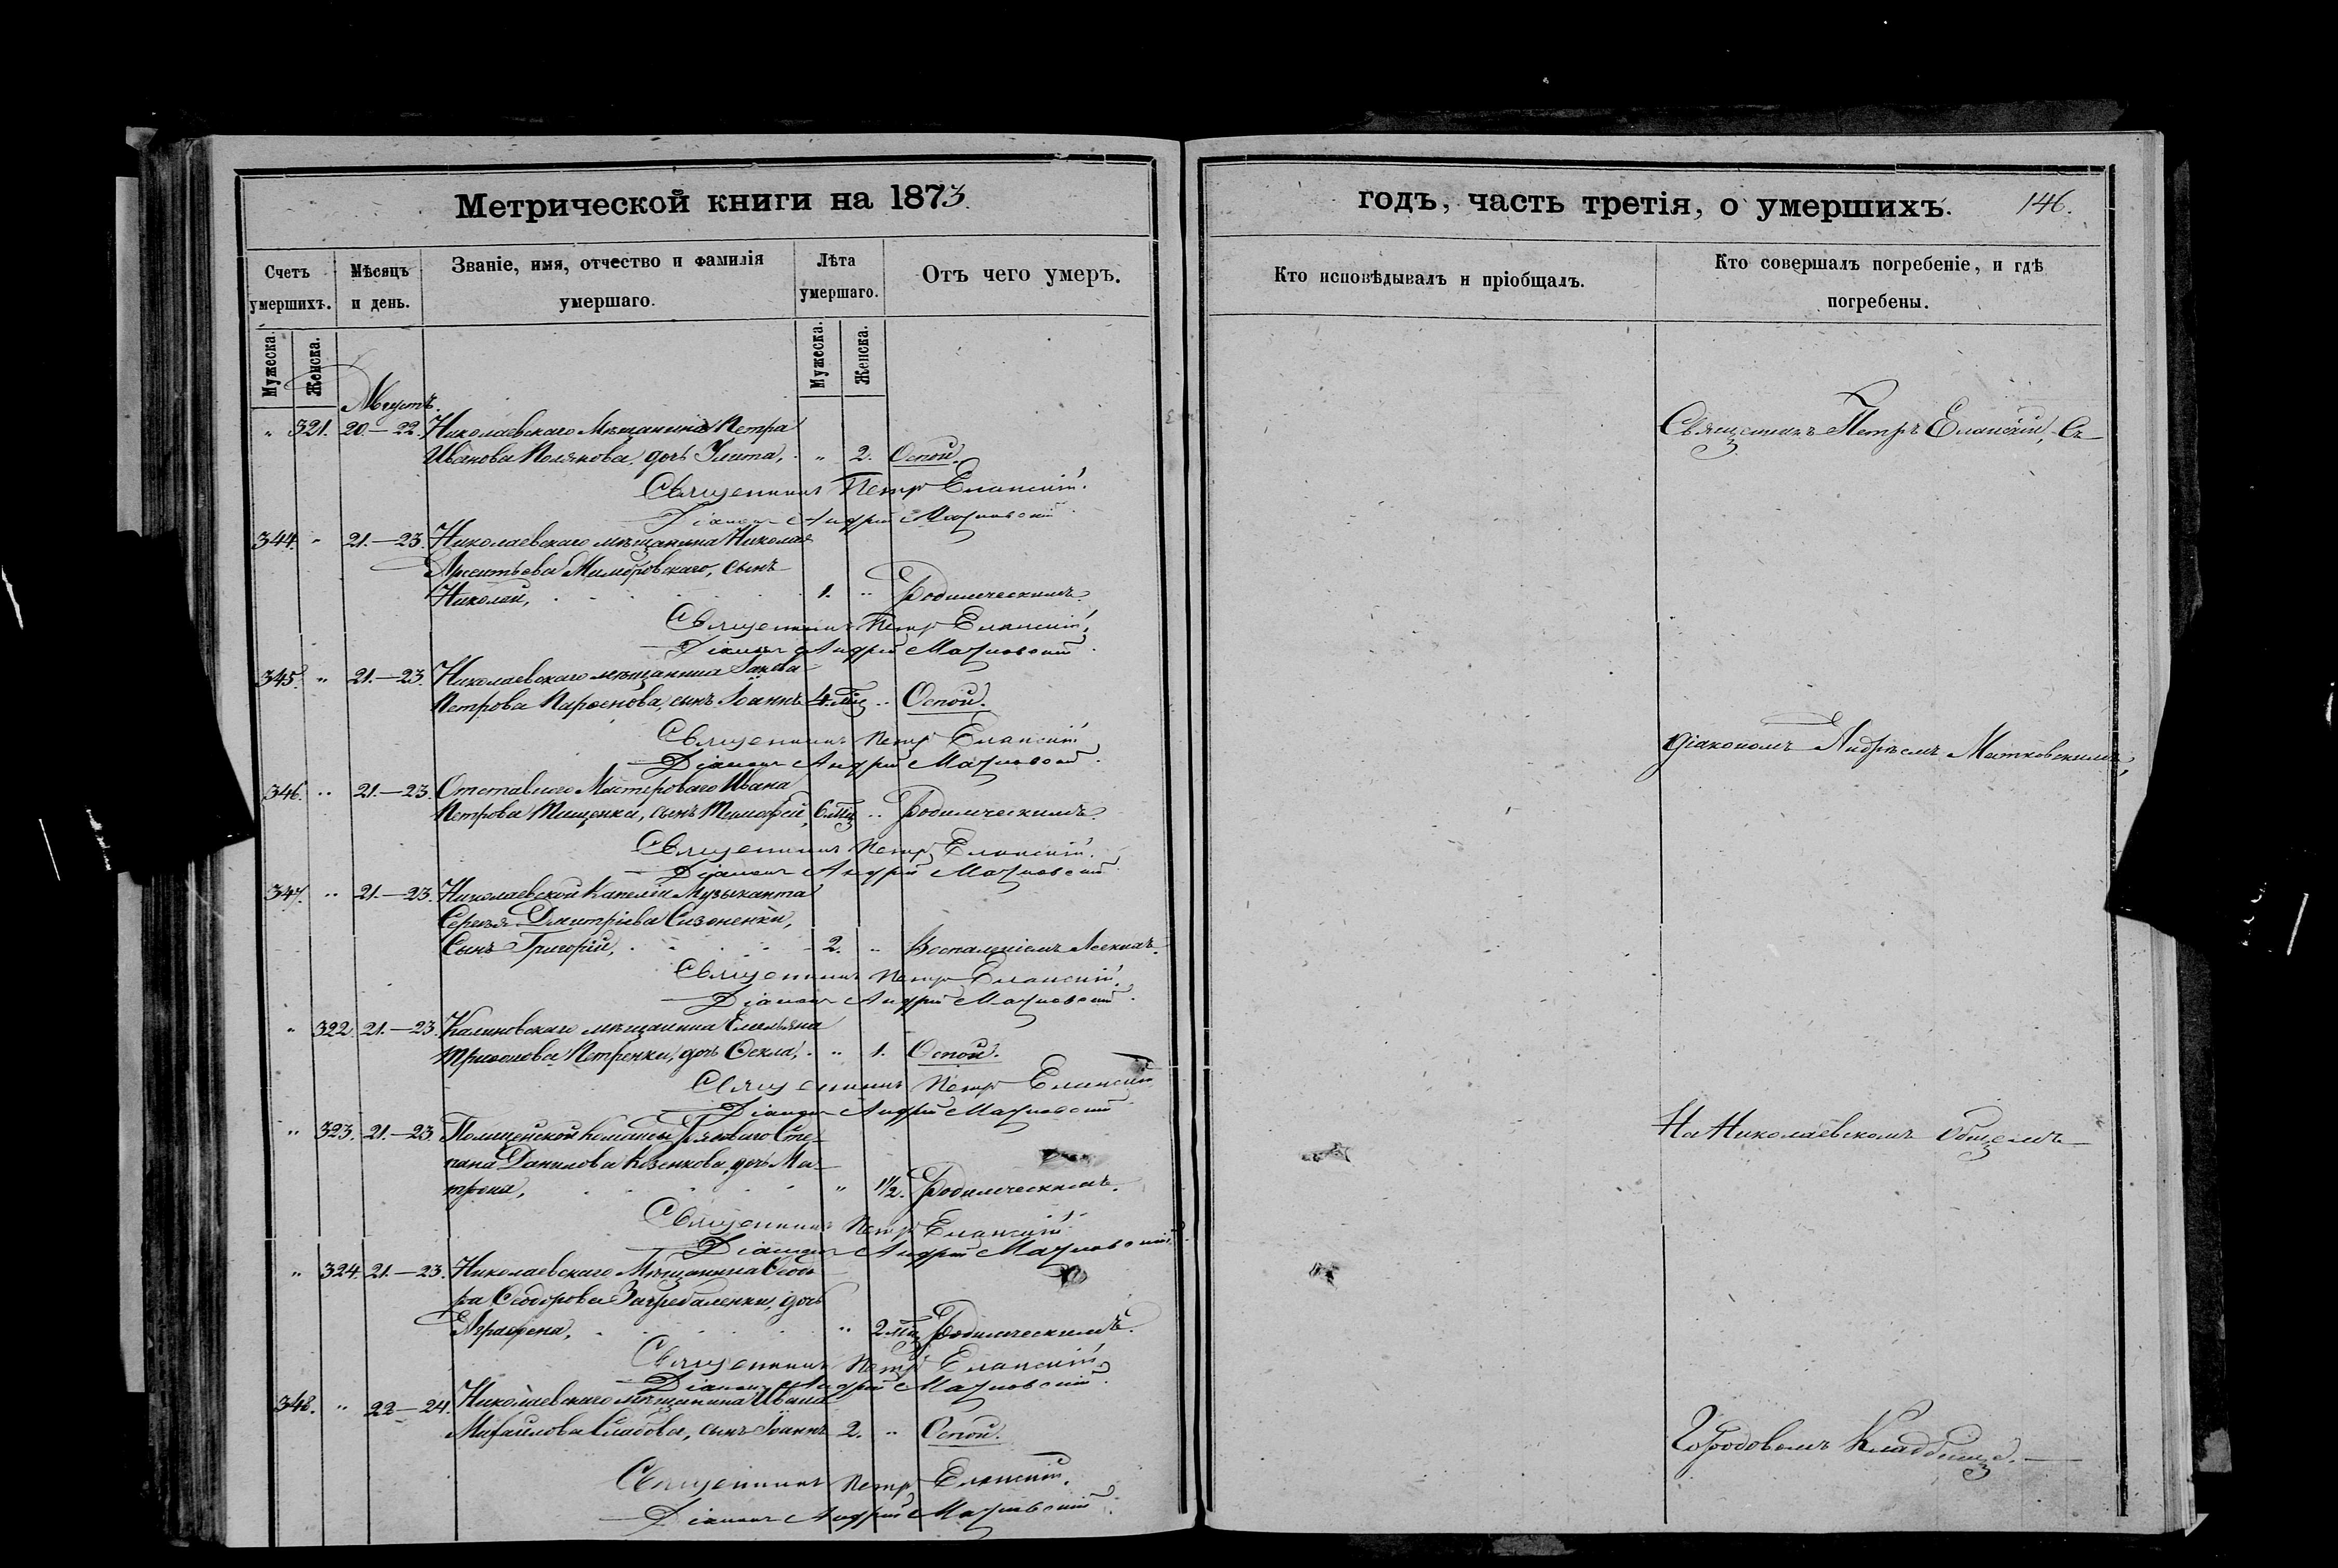 Метрической книги на 1873.
Счетъ умершихъ.
Мѣсяцъ и день.
Званіе, имя, отчество и фамилія
умершаго.
Лѣта умершаго.
Отъ чего умеръ.
Мужеска.
Женска.
Мужеска.
Женска.
Августъ.
„ 321. 20.—22. Николаевскаго Мѣщанина Петра
Иванова Полякова, дочь Улита, „ 2. Оспой.
Священникъ Петръ Еланскій.
Діаконъ Андрей
344. „ 21.—23. Николаевскаго мѣщанина Николая
Арсентьева сынъ
Николай, 1. „ Родимческимъ.
Священникъ Петръ Еланскій.
Діаконъ Андрей
345. „ 21.—23. Николаевскаго мѣщанина Іакова
Петрова Парѳенова, сынъ Іоаннъ 4. мѣс „ Оспой.
Священникъ Петръ Еланскій
Діаконъ Андрей
346. „ 21.—23. Отставнаго Мастероваго Ивана
Петрова Тищенки, сынъ Тимоѳей, 6 мѣс „ Родимческимъ.
Священникъ Петръ Еланскій.
Діаконъ Андрей
347. „ 21.—23. Николаевской Капеліи Музыканта
Сергѣя Дмитріева Сизоненки,
Сынъ Григорій, 2. „ Воспаленіемъ легкихъ.
Священникъ Петръ Еланскій.
Діаконъ Андрей
„ 322. 21.—23. Калиновскаго мѣщанина Емельяна
Петренки, дочь Ѳекла, „ 1. Оспой.
Священникъ Петръ Еланскій
Діаконъ Андрей
„ 323. 21.—23. Полицейской команды Рядоваго Сте-
пана Данилова Козенкова, дочь Ма-
трона, „ 1½. Родимческимъ.
Священникъ Петръ Еланскій
Діаконъ Андрей
„ 324. 21.—23. Николаевскаго Мѣщанина Ѳеодо-
ра Ѳеодорова дочь
Аграфена, „ 2. мѣс Родимческимъ.
Священникъ Петръ Еланскій
Діаконъ Андрей
348. „ 22—24. Николаевскаго мѣщанина Ивана
Михайлова Слабова, сынъ Іоаннъ 2. „ Оспой.
Священникъ Петръ Еланскій.
Діаконъ Андрей
годъ, часть третія, о умершихъ. 146.
Кто исповѣдывалъ и пріобщалъ.
Кто совершалъ погребеніе, и гдѣ
погребены.
Священникъ Петръ Еланскій, съ
діакономъ Андреемъ
На Николаевскомъ общемъ
Городовомъ Кладбищѣ.